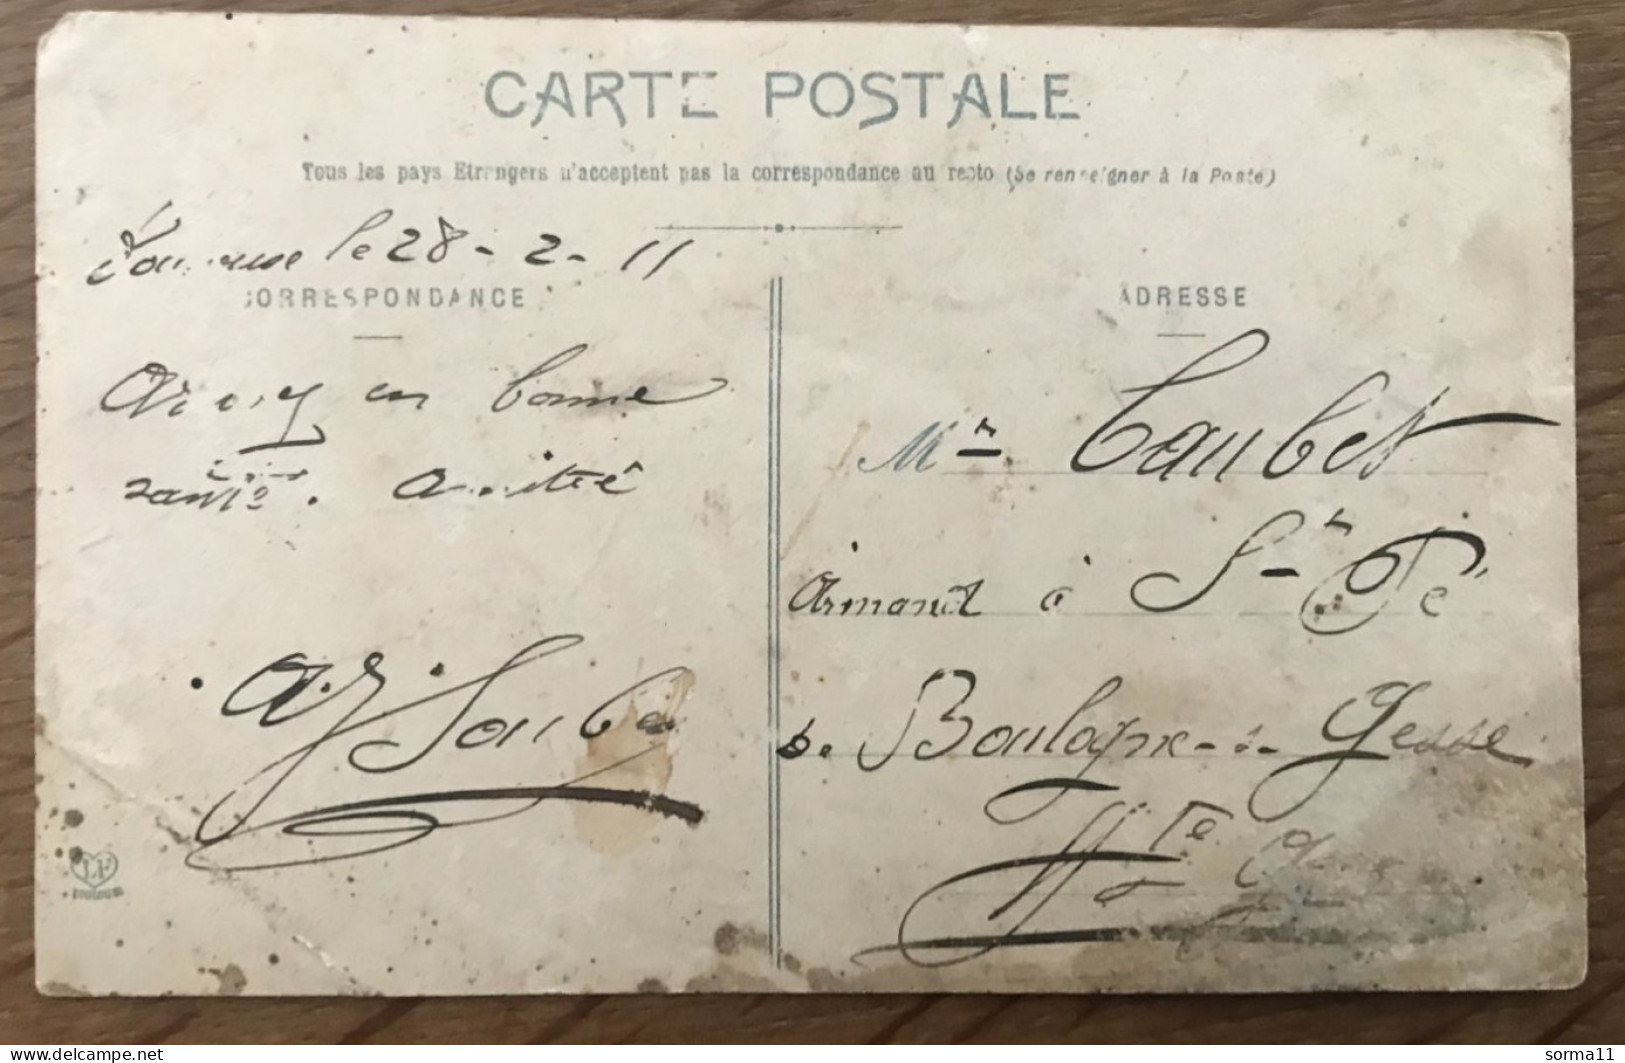 CARTE POSTALE
Tous les pays Etrangers n'acceptent pas la correspondance au recto (Se renseigner à la Poste)
Toulouse le 28 - 2 - 11
CORRESPONDANCE
en bonne
santé. Amitié
ADRESSE
Mr Taubet
Armand à St
de Boulogne-s- Gesse
Hte G
LF
TOULOUSE
delcampe.net
sorma11